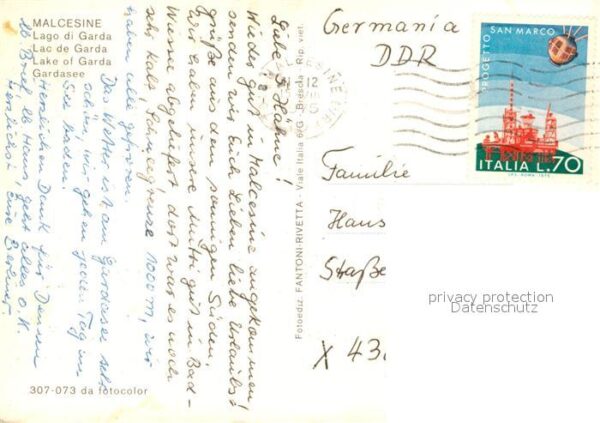 MALCESINE
Lago di Garda
Lac de Garda
Lake of Garda
Gardasee
Liebe Hähne!
Wieder gut in Malcesine angekommen
senden wir Euch Lieben liebe Urlaubs-
grüße aus dem sonnigen Süden.
Wir haben unsere Mutti gut in Bad-
Wiessee abgeliefert dort war es noch
sehr kalt, Schneegrenze 1000 m, wir
haben alle gefroren.
Das Wetter ist am Gardasee sehr
schön, wir gehen jeden Tag im
See baden.
Herzlichen Dank für Deinen
lb. Brief, lb. Hans, geht alles o.K.
Herzlichst Eure
307-073 da fotocolor
Fotoediz. FANTONI-RIVETTA - Viale Italia 6/G - Brescia - Rip. viet.
Germania
DDR
12
PROGETTO SAN MARCO
ITALIA L.70
I.P.S. ROMA 1975
Familie
Hans
Staße
X 43
privacy protection
Datenschutz